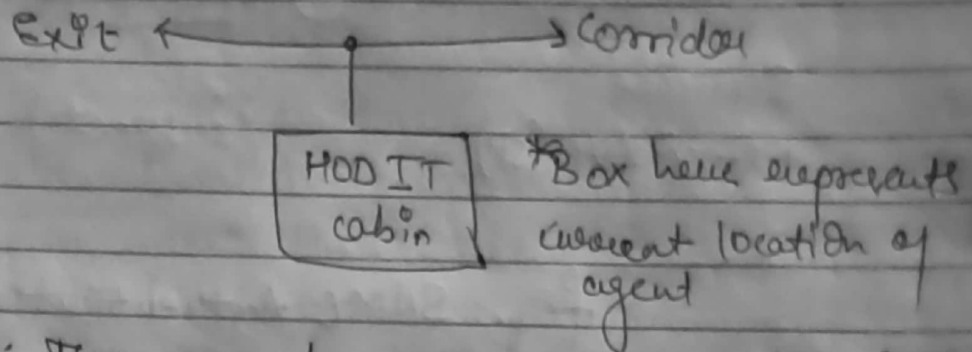 Exit
Corridor
HOD IT
cabin
*Box here represents
current location of
agent